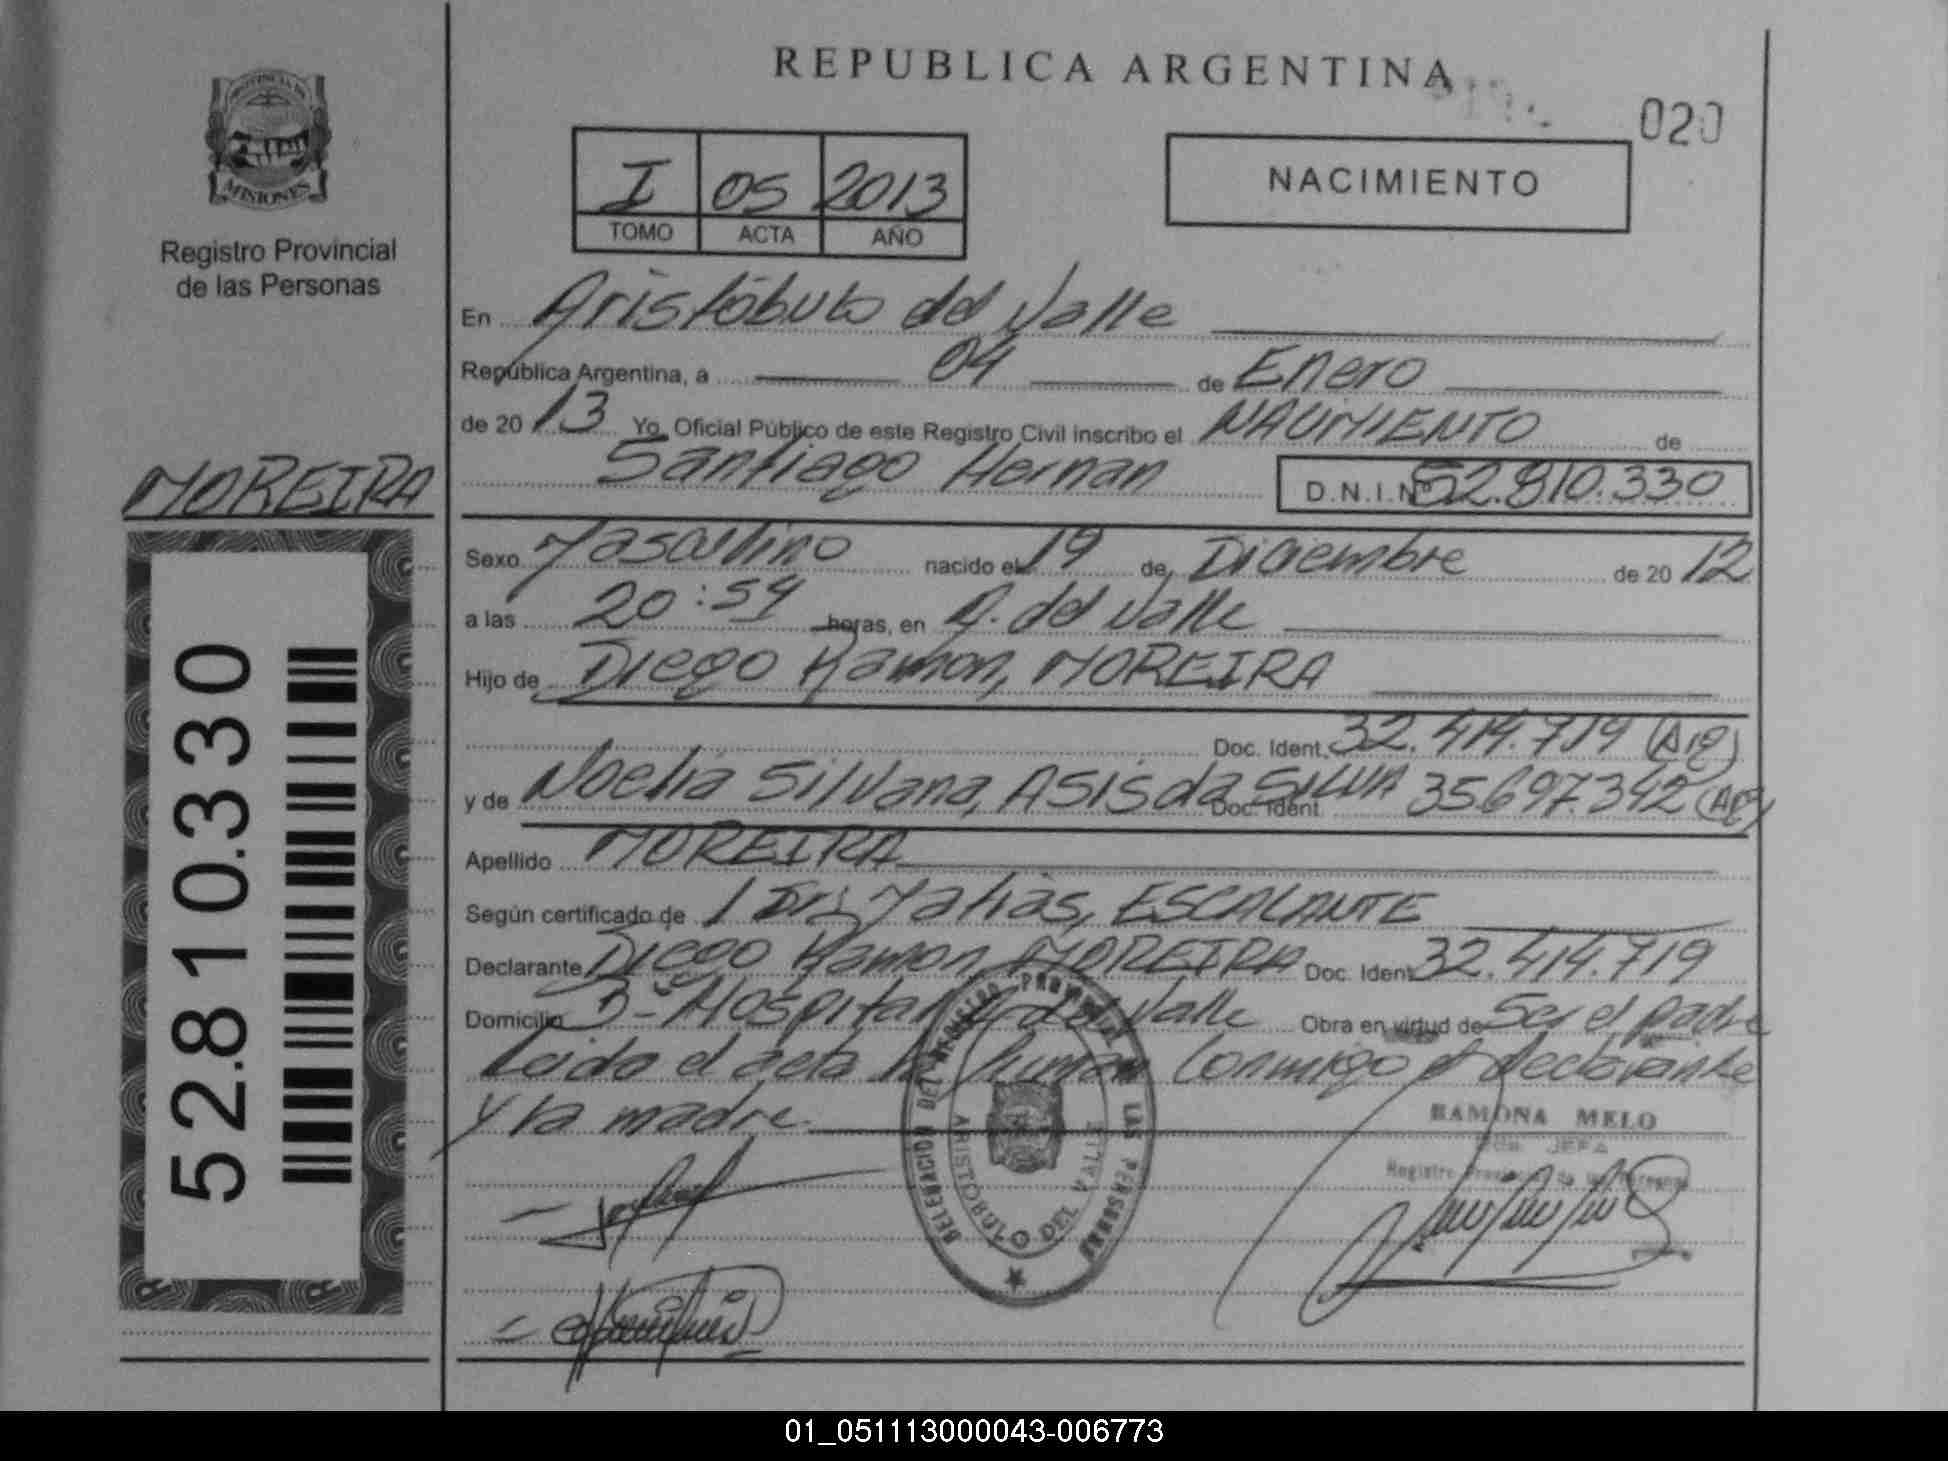 REPUBLICA ARGENTINA
020
PROVINCIA DE
MISIONES
Registro Provincial
de las Personas
I 05 2013
TOMO ACTA AÑO
NACIMIENTO
En Aristóbulo del Valle
República Argentina, a 04 de Enero
de 2013 Yo, Oficial Público de este Registro Civil inscribo el NACIMIENTO de
Santiago Hernan D.N.I.Nº 52.810.330
MOREIRA
52.810.330
Sexo Masculino nacido el 19 de Diciembre de 2012
a las 20:54 horas, en A. del Valle
Hijo de Diego Ramon, MOREIRA
Doc. Ident. 32.414.719 (Arg)
y de Noelia Silvana, ASIS da SILVA Doc. Ident. 35.697.342 (Arg)
Apellido MOREIRA
Según certificado de Matias, ESCALANTE
Declarante Diego Ramon MOREIRA Doc. Ident. 32.414.719
Domicilio Hospital del Valle Obra en virtud de Ser el padre
Leida el acta la firman Conmigo el declarante
y la madre
DELEGACION DEL REGISTRO PROVINCIAL DE LAS PERSONAS
ARISTOBULO DEL VALLE
RAMONA MELO
JEFA
Registro Provincial de las Personas
01_051113000043-006773